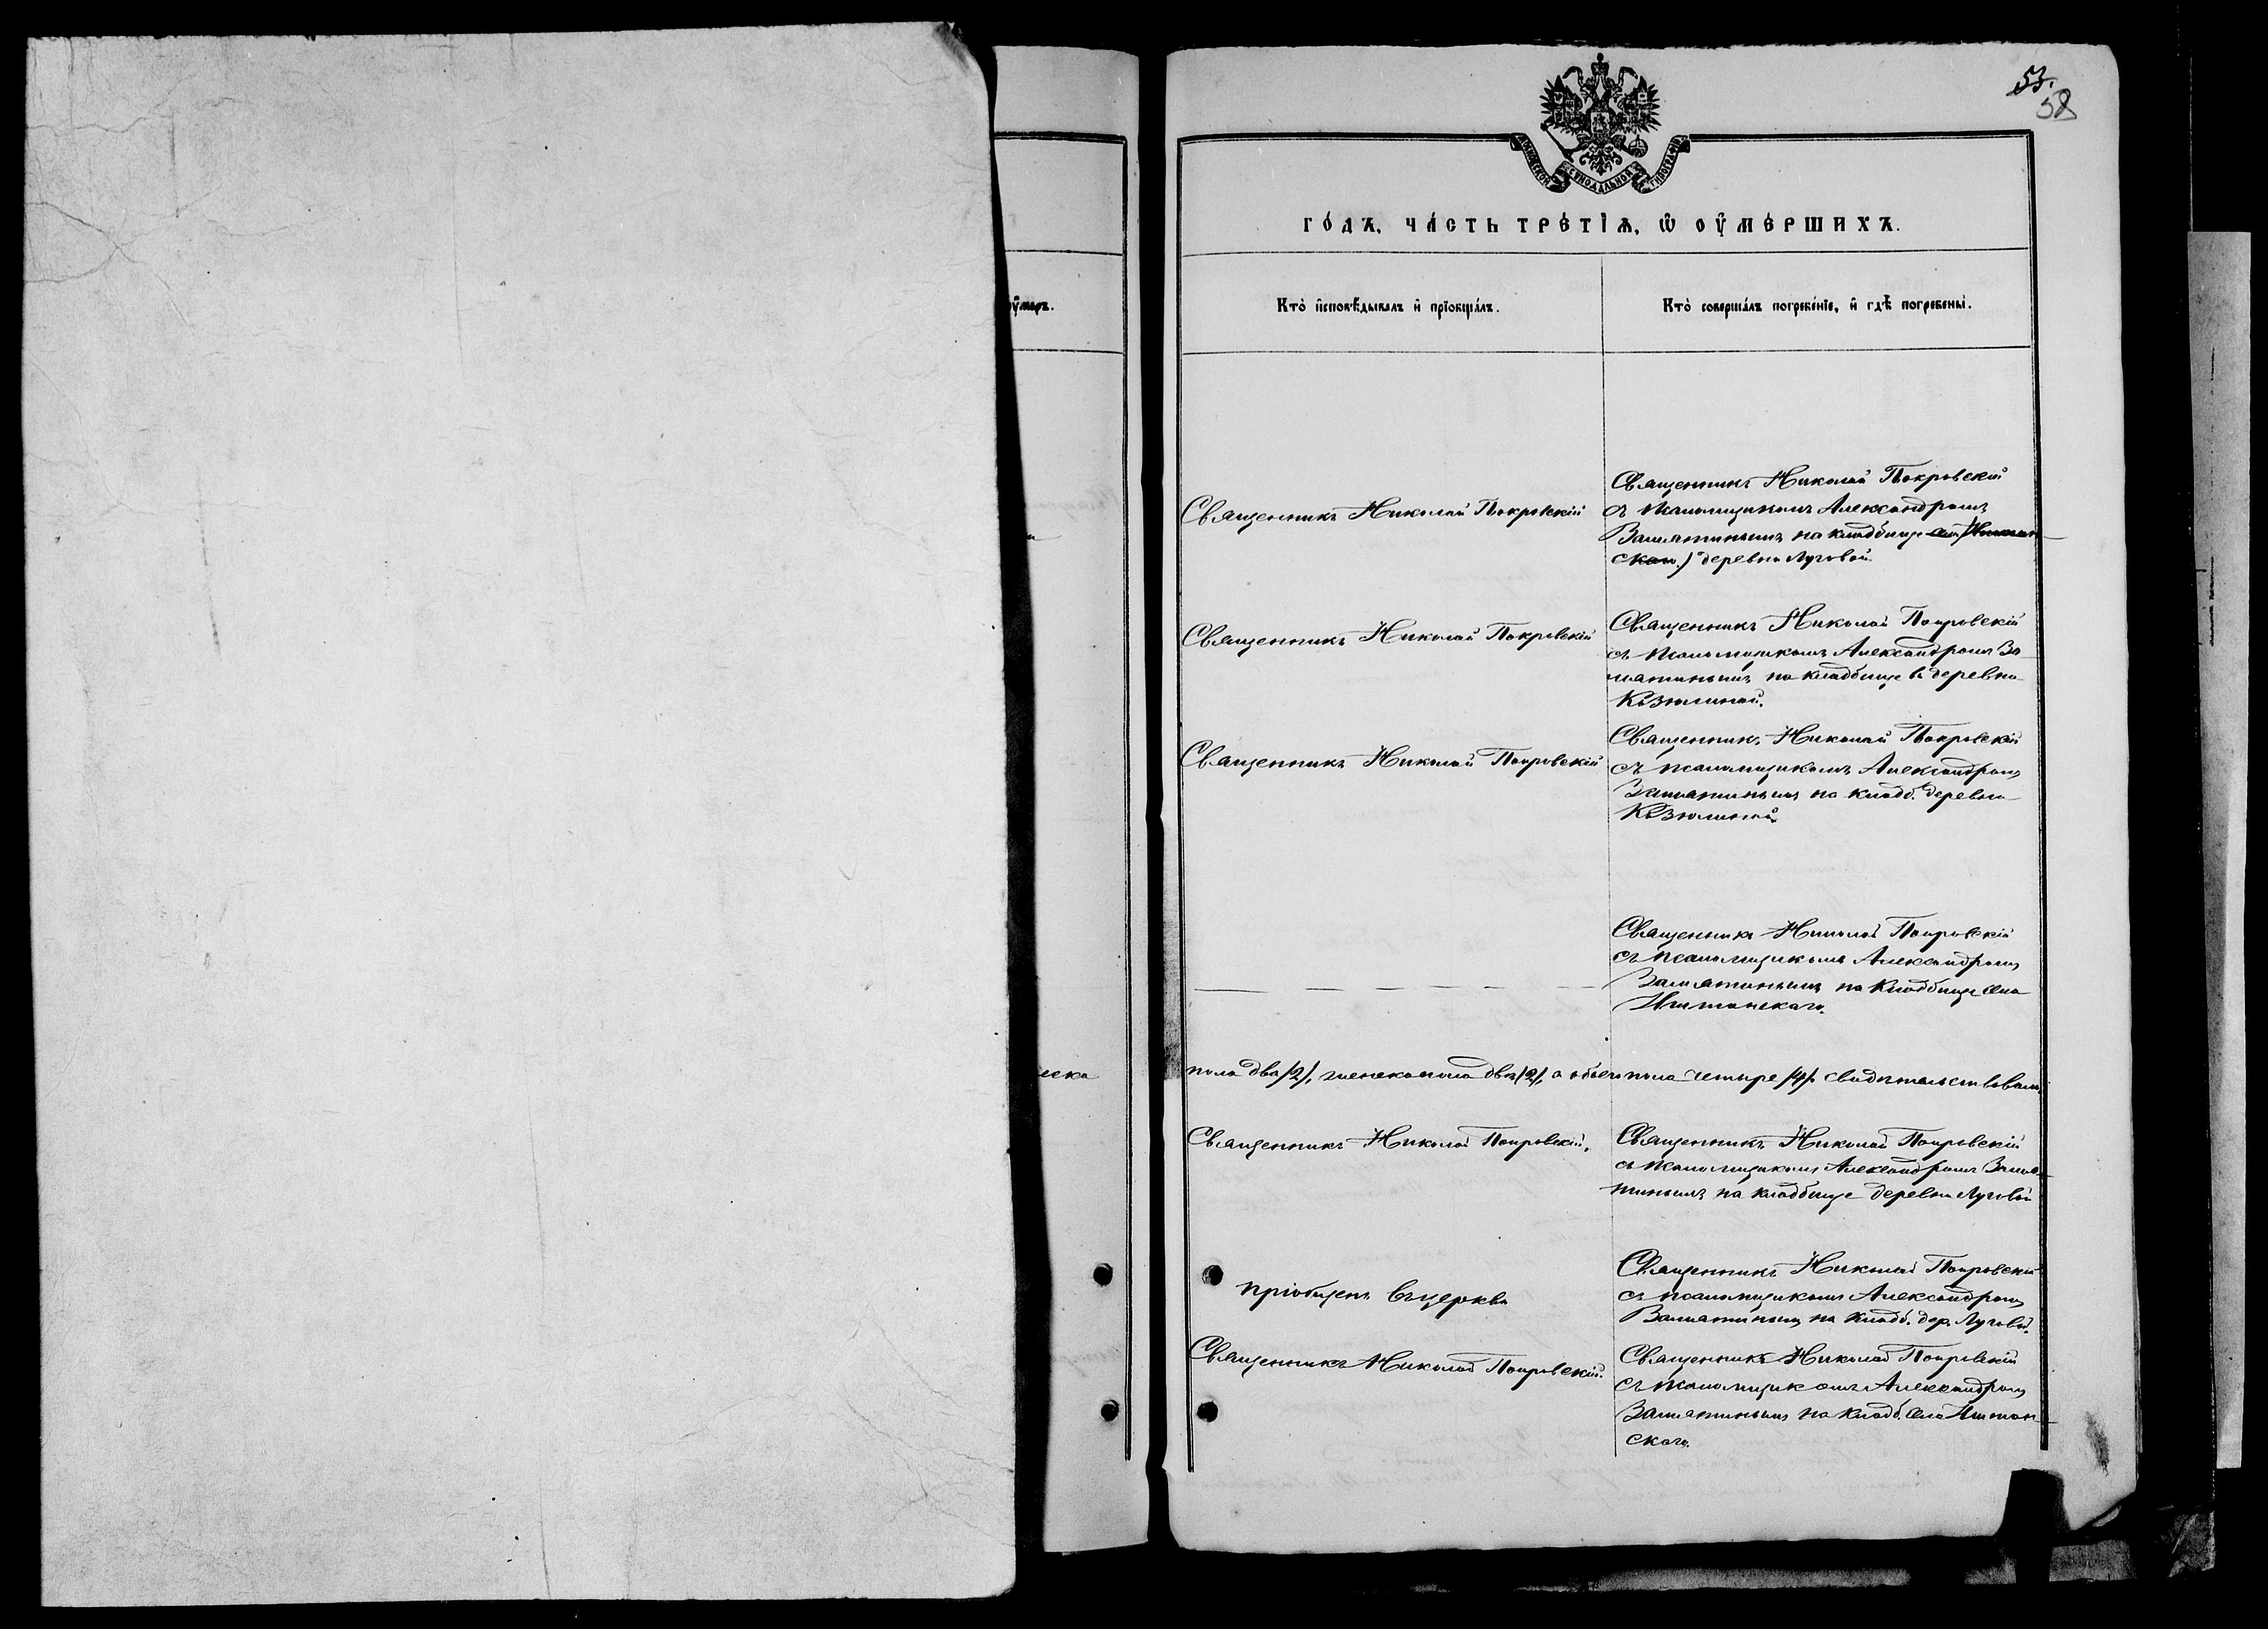 53.
58
МОСКОВСКОЙ СѴНОДАЛЬНОЙ ТИПОГРАФІИ
го́дъ, ча́сть тре́тїѧ, ѡ҆ оу҆ме́ршихъ.
оу҆меръ.
Кто̀ и҆сповѣ́дывалъ и҆ прїобща́лъ.
Кто̀ соверша́лъ погребе́нїе, и҆ гдѣ̀ погребены̀.
Священникъ Николай Покровскій
Священникъ Николай Покровскій
съ псаломщикомъ Александромъ
Замятинымъ на кладбище села Иштан-
скаго) деревни Луговой.
Священникъ Николай Покровскій
Священникъ Николай Покровскій
съ псаломщикомъ Александромъ За-
мятинымъ на кладбище въ деревни
Козюлиной.
Священникъ Николай Покровскій
Священникъ Николай Покровскій
съ псаломщикомъ Александромъ
Замятинымъ на кладб. деревни
Козюлиной.
Священникъ Николай Покровскій
съ псаломщикомъ Александромъ
Замятинымъ на кладбище села
Иштанскаго.
пола два /2/, женскаго пола двѣ /2/, а обоего пола четыре /4/. свидѣтельствовали
Священникъ Николай Покровскій.
Священникъ Николай Покровскій
съ псаломщикомъ Александромъ Замя-
тинымъ на кладбище деревни Луговой
пріобщенъ въ церкви
Священникъ Николай Покровскій
съ псаломщикомъ Александромъ
Замятинымъ на кладб. дер. Луговой.
Священникъ Николай Покровскій.
Священникъ Николай Покровскій
съ псаломщикомъ Александромъ
Замятинымъ на кладб. села Иштан-
скаго.